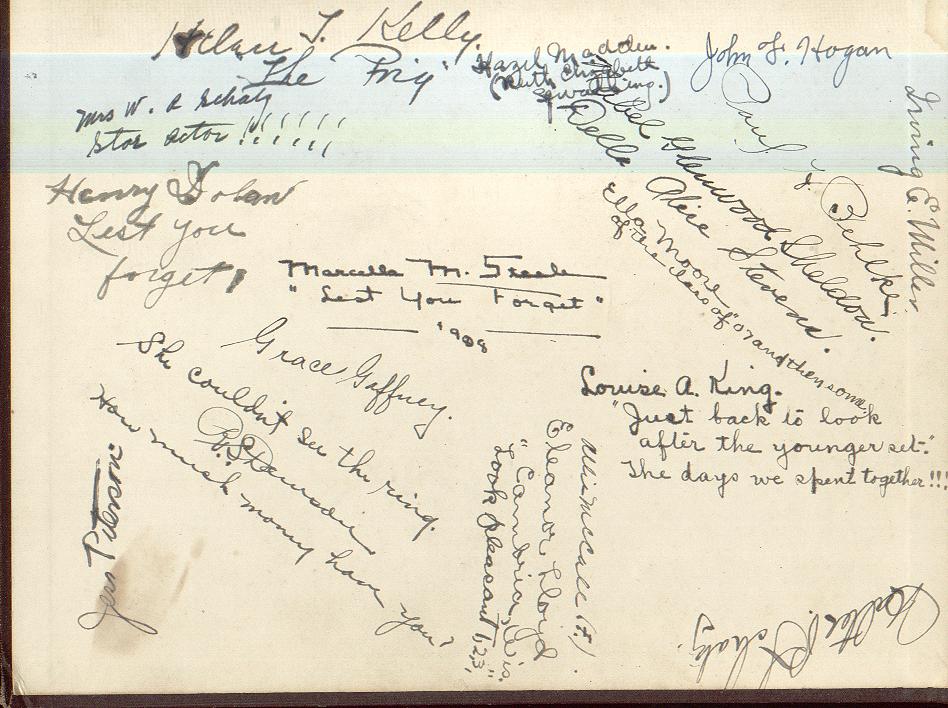 T. Kelly.
"The Prig"
Hazel Madden.
(Ruth Elizabeth
John F. Hogan
Mrs W. R Schatz
Star Actor !!!!!!!
Henry Dolan
Lest you
forget,
Irving E. Miller
Paul J
Glenwood Sheldon.
Della Alice Stevens.
Ella Moore
of the class of "07 and then some.
Marcella M. Steele
"Lest You Forget"
1908
Grace Gaffney.
She couldn't see the ring.
How much money have you?
Louise A. King.
"Just back to look
after the younger set."
The days we spent together!!!
Eleanor Lloyd
"Look pleasant, 1,2,3".
Jens Peterson
Schatz